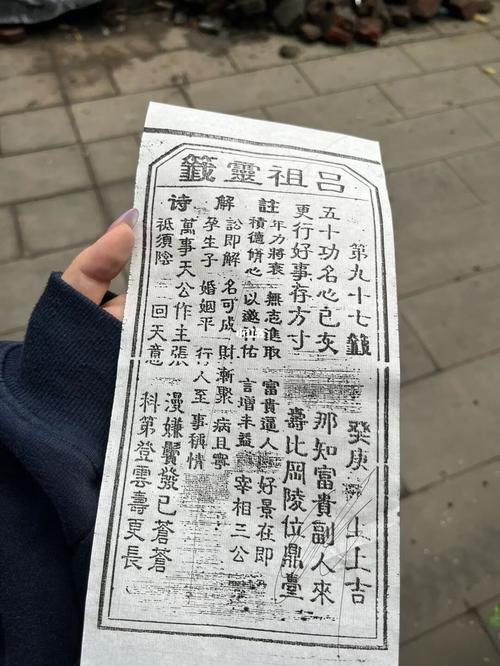 呂祖靈籤
第九十七籤 癸庚 上上吉
五十功名心已灰 那知富貴副人來
更行好事存方寸 壽比岡陵位鼎臺
註
年力將衰 無志進取 富貴逼人 好景在即
積德脩心 以邀佑 言增益 宰相三公
解
訟即解 名可成 財漸聚 病且寧
孕生子 婚姻平 行人至 事稱情
诗
萬事天公作主張 漫嫌鬢發已蒼蒼
祗須陰 回天意 科第登雲壽更長